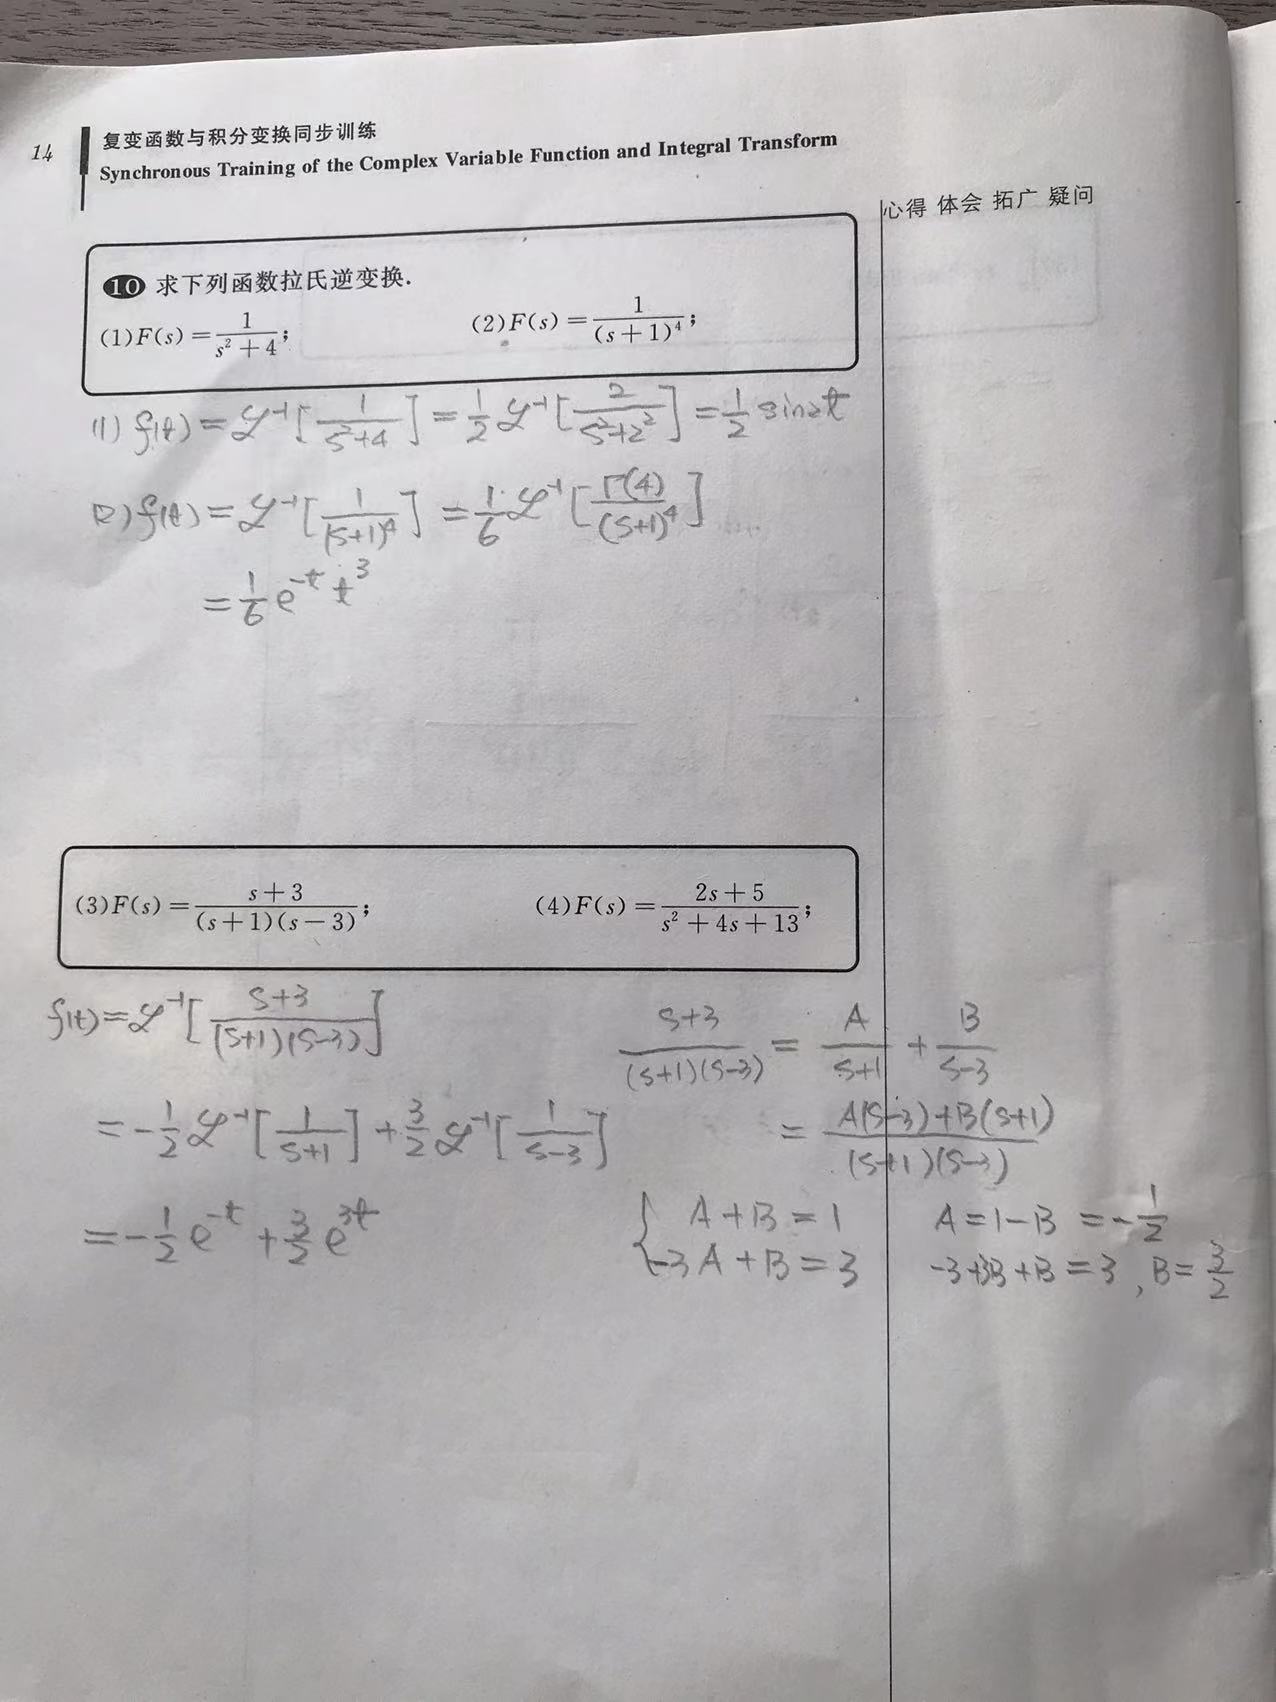 14
复变函数与积分变换同步训练
Synchronous Training of the Complex Variable Function and Integral Transform
心得 体会 拓广 疑问
10 求下列函数拉氏逆变换.
(1)F(s)=\frac{1}{s^2+4}; (2)F(s)=\frac{1}{(s+1)^4};
(1) f(t)=ℒ^{-1}[\frac{1}{s^2+4}]=\frac{1}{2}ℒ^{-1}[\frac{2}{s^2+2^2}]=\frac{1}{2}sin2t
(2) f(t)=ℒ^{-1}[\frac{1}{(s+1)^4}]=\frac{1}{6}ℒ^{-1}[\frac{Γ(4)}{(s+1)^4}]
=\frac{1}{6}e^{-t}t^3
(3)F(s)=\frac{s+3}{(s+1)(s-3)}; (4)F(s)=\frac{2s+5}{s^2+4s+13};
f(t)=ℒ^{-1}[\frac{s+3}{(s+1)(s-3)}]
=-\frac{1}{2}ℒ^{-1}[\frac{1}{s+1}]+\frac{3}{2}ℒ^{-1}[\frac{1}{s-3}]
=-\frac{1}{2}e^{-t}+\frac{3}{2}e^{3t}
\frac{s+3}{(s+1)(s-3)}=\frac{A}{s+1}+\frac{B}{s-3}
=\frac{A(s-3)+B(s+1)}{(s+1)(s-3)}
{ A+B=1 A=1-B=-\frac{1}{2}
-3A+B=3 -3+3B+B=3, B=\frac{3}{2}